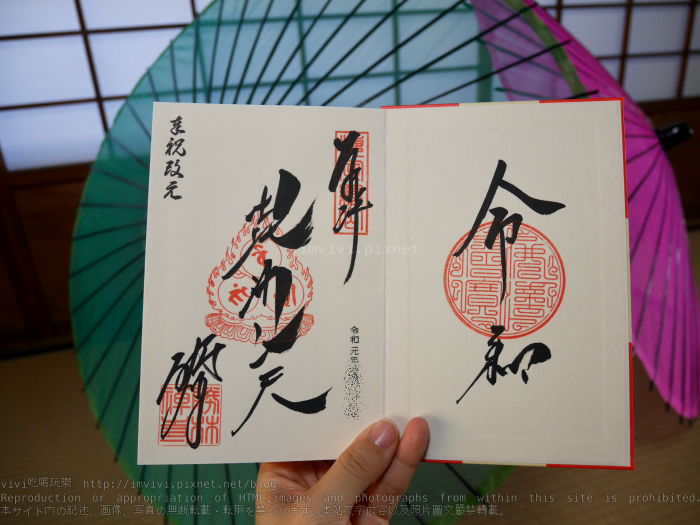 令和
奉拝
毘沙門天
奉祝改元
令和元年
imvivi.pixnet
vivi吃喝玩樂：http://imvivi.pixnet.net/blog
Reproduction or appropriation of HTML,images and photographs from within this site is prohibited.
本サイト内の記述、画像、写真の無断転載・転用を禁止します。本站文字內容以及照片圖文嚴禁轉載。